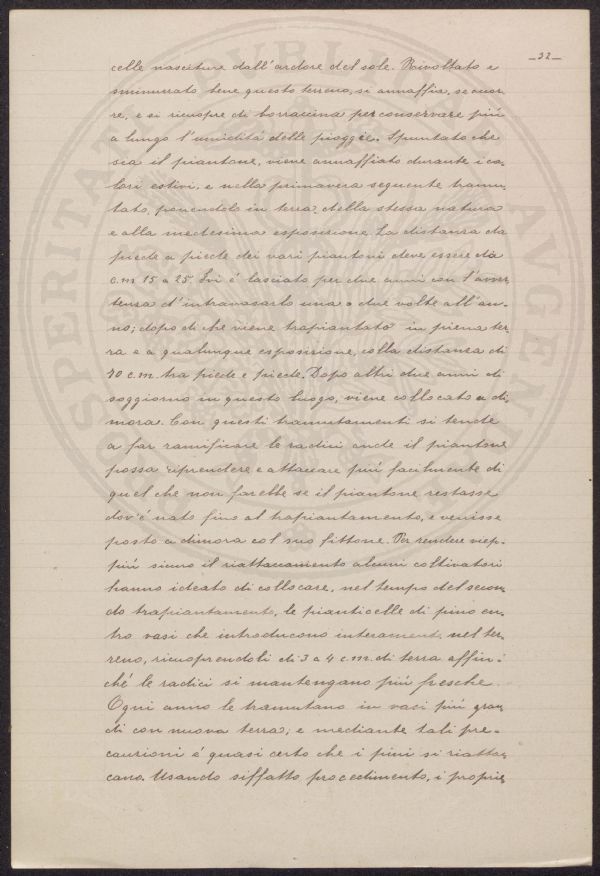 _32_
celle nasciture dall'ardore del sole. Rivoltato e
sminuzzato bene questo terreno, si annaffia, se occor=
re, e si ricuopre di borraccina per conservare più
a lungo l'umidità delle pioggie. Spuntato che
sia il piantone, viene annaffiato durante i ca=
lori estivi, e nella primavera seguente tramu=
tato, ponendolo in terra della stessa natura
e alla medesima esposizione. La distanza da
piede a piede dei vari piantoni deve essere da
c.m 15 a 25. Ivi é lasciato per due anni con l'avver=
tenza d'intravasarlo una o due volte all'an=
no; dopo di che viene trapiantato in piena ter=
ra e a qualunque esposizione, colla distanza di
70 c.m. tra piede e piede. Dopo altri due anni di
soggiorno in questo luogo, viene collocato a di=
mora. Con questi tramutamenti si tende
a far ramificare le radici onde il piantone
possa riprendere e attaccare più facilmente di
quel che non farebbe se il piantone restasse
dov'é nato fino al trapiantamento, e venisse
posto a dimora col suo fittone. Per rendere viep=
più sicuro il riattaccamento alcuni coltivatori
hanno ideato di collocare, nel tempo del secon=
do trapiantamento, le pianticelle di pino en=
tro vasi che introducono interament. nel ter=
reno, ricuoprendoli di 3 a 4 c.m. di terra affin=
ché le radici si mantengano più fresche.
Ogni anno le tramutano in vasi più gran=
di con nuova terra; e mediante tali pre=
cauzioni é quasi certo che i pini si riattac=
cano. Usando siffatto procedimento, i proprie=
PROSPERITATI PUBLICAE AUGENDAE